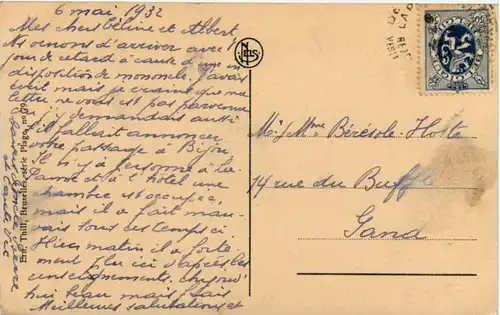 6 mai 1932
Mes chers Céline et Albert,
Nous venons d'arriver avec 1
jour de retard à cause d'une in
disposition de mononcle. J'avais
écrit mais je crains que ma
lettre ne vous est pas parvenue
j'y demandais aussi
s'il fallait annoncer
votre passage à Bijou
Il n'y a personne à La
Panne et à l'hotel une
chambre est occupée,
mais il a fait mau-
vais tous ces temps ci
Hier matin il a forte-
ment plu ici d'après les
renseignements. Aujourd'
hui beau mais frais
Meilleures salutations et
Ern. Thill, Bruxelles, série Plage, no
NELS
BELGIQUE
M. & Mme Bérésole-Holte
14 rue du Buffle
Gand